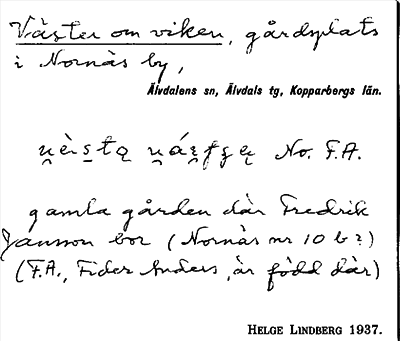 Väster om viken, gårdsplats
i Nornäs by,
Älvdalens sn, Älvdals tg, Kopparbergs län.
No. F.A.
gamla gården där Fredrik
Jansson bor (Nornäs nr 10 b?)
(F.A., Fider Anders, är född där)
HELGE LINDBERG 1937.